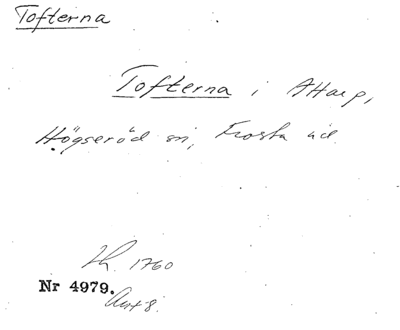 Tofterna
Tofterna i Attarp,
Högseröd sn, Frosta hd.
1760
Nr 4979.